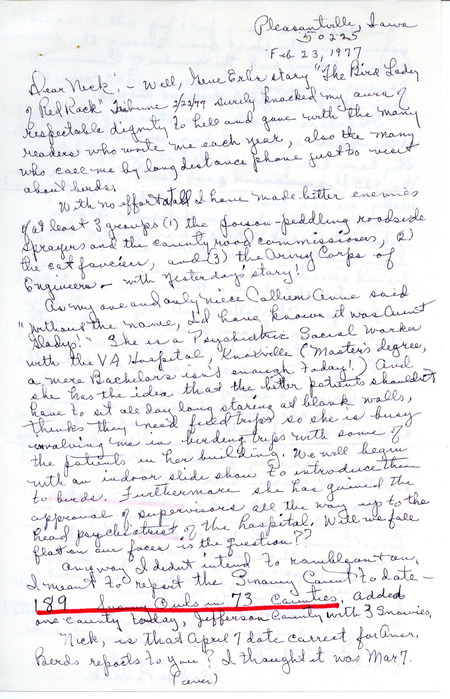 Pleasantville, Iowa
50225
Feb 23, 1977
Dear Nick! - Well, Gene Erb's story "The Bird Lady
of Red Rock" Tribune 2/22/77 surely knocked my aura of
respectable dignity to hell and gone with the many
readers who wrote me each year, also the many
who call me by long distance phone just to visit
about birds.
With no effort at all I have made bitter enemies
of at least 3 groups (1) the poison-peddling roadside
sprayers and the county road commissioners, (2)
the cat fanciers, and (3) the Army Corps of
Engineers - with yesterday's story!
As my one and only niece Anne said
"without the name, I'd have known it was Aunt
Gladys." She is a Psychiatric Social Worker
with the VA Hospital, Knoxville (Master's degree,
a mere Bachelors isn't enough today!) And
she has the idea that the better patients shouldn't
have to sit all day long staring at blank walls,
thinks they need field trips so she is busy
involving me in birding trips with some of
the patients in her building. We will begin
with an indoor slide show to introduce them
to birds. Furthermore she has gained the
approval of supervisors all the way up to the
head psychiatrist of the hospital. Will we fall
flat on our faces is the question??
Anyway I didn't intend to ramble on & on.
I meant to report the Snowy Count to date -
189 Snowy Owls in 73 counties. Added
one county today, Jefferson County with 3 Snowies.
Nick, is that April 7 date correct for Amer.
Birds reports to you? I thought it was Mar 7.
(over)